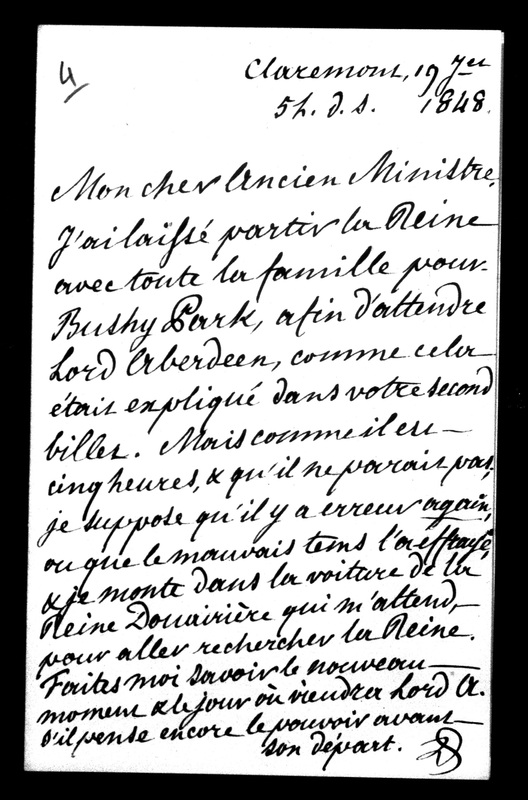 4
Claremont, 19 7bre
5h. d. s. 1848.
Mon cher Ancien Ministre,
J'ai laissé partir la Reine
avec toute la famille pour
Bushy Park, afin d'attendre
Lord Aberdeen, comme cela
était expliqué dans votre second
billet. Mais comme il est
cinq heures, & qu'il ne parait pas,
je suppose qu'il y a erreur again,
ou que le mauvais tems l'a effrayé,
& je monte dans la voiture de la
Reine Douairière qui m'attend,
pour aller rechercher la Reine.
Faites moi savoir le nouveau
moment & le jour où viendra Lord A.
s'il pense encore le pouvoir avant
son départ.